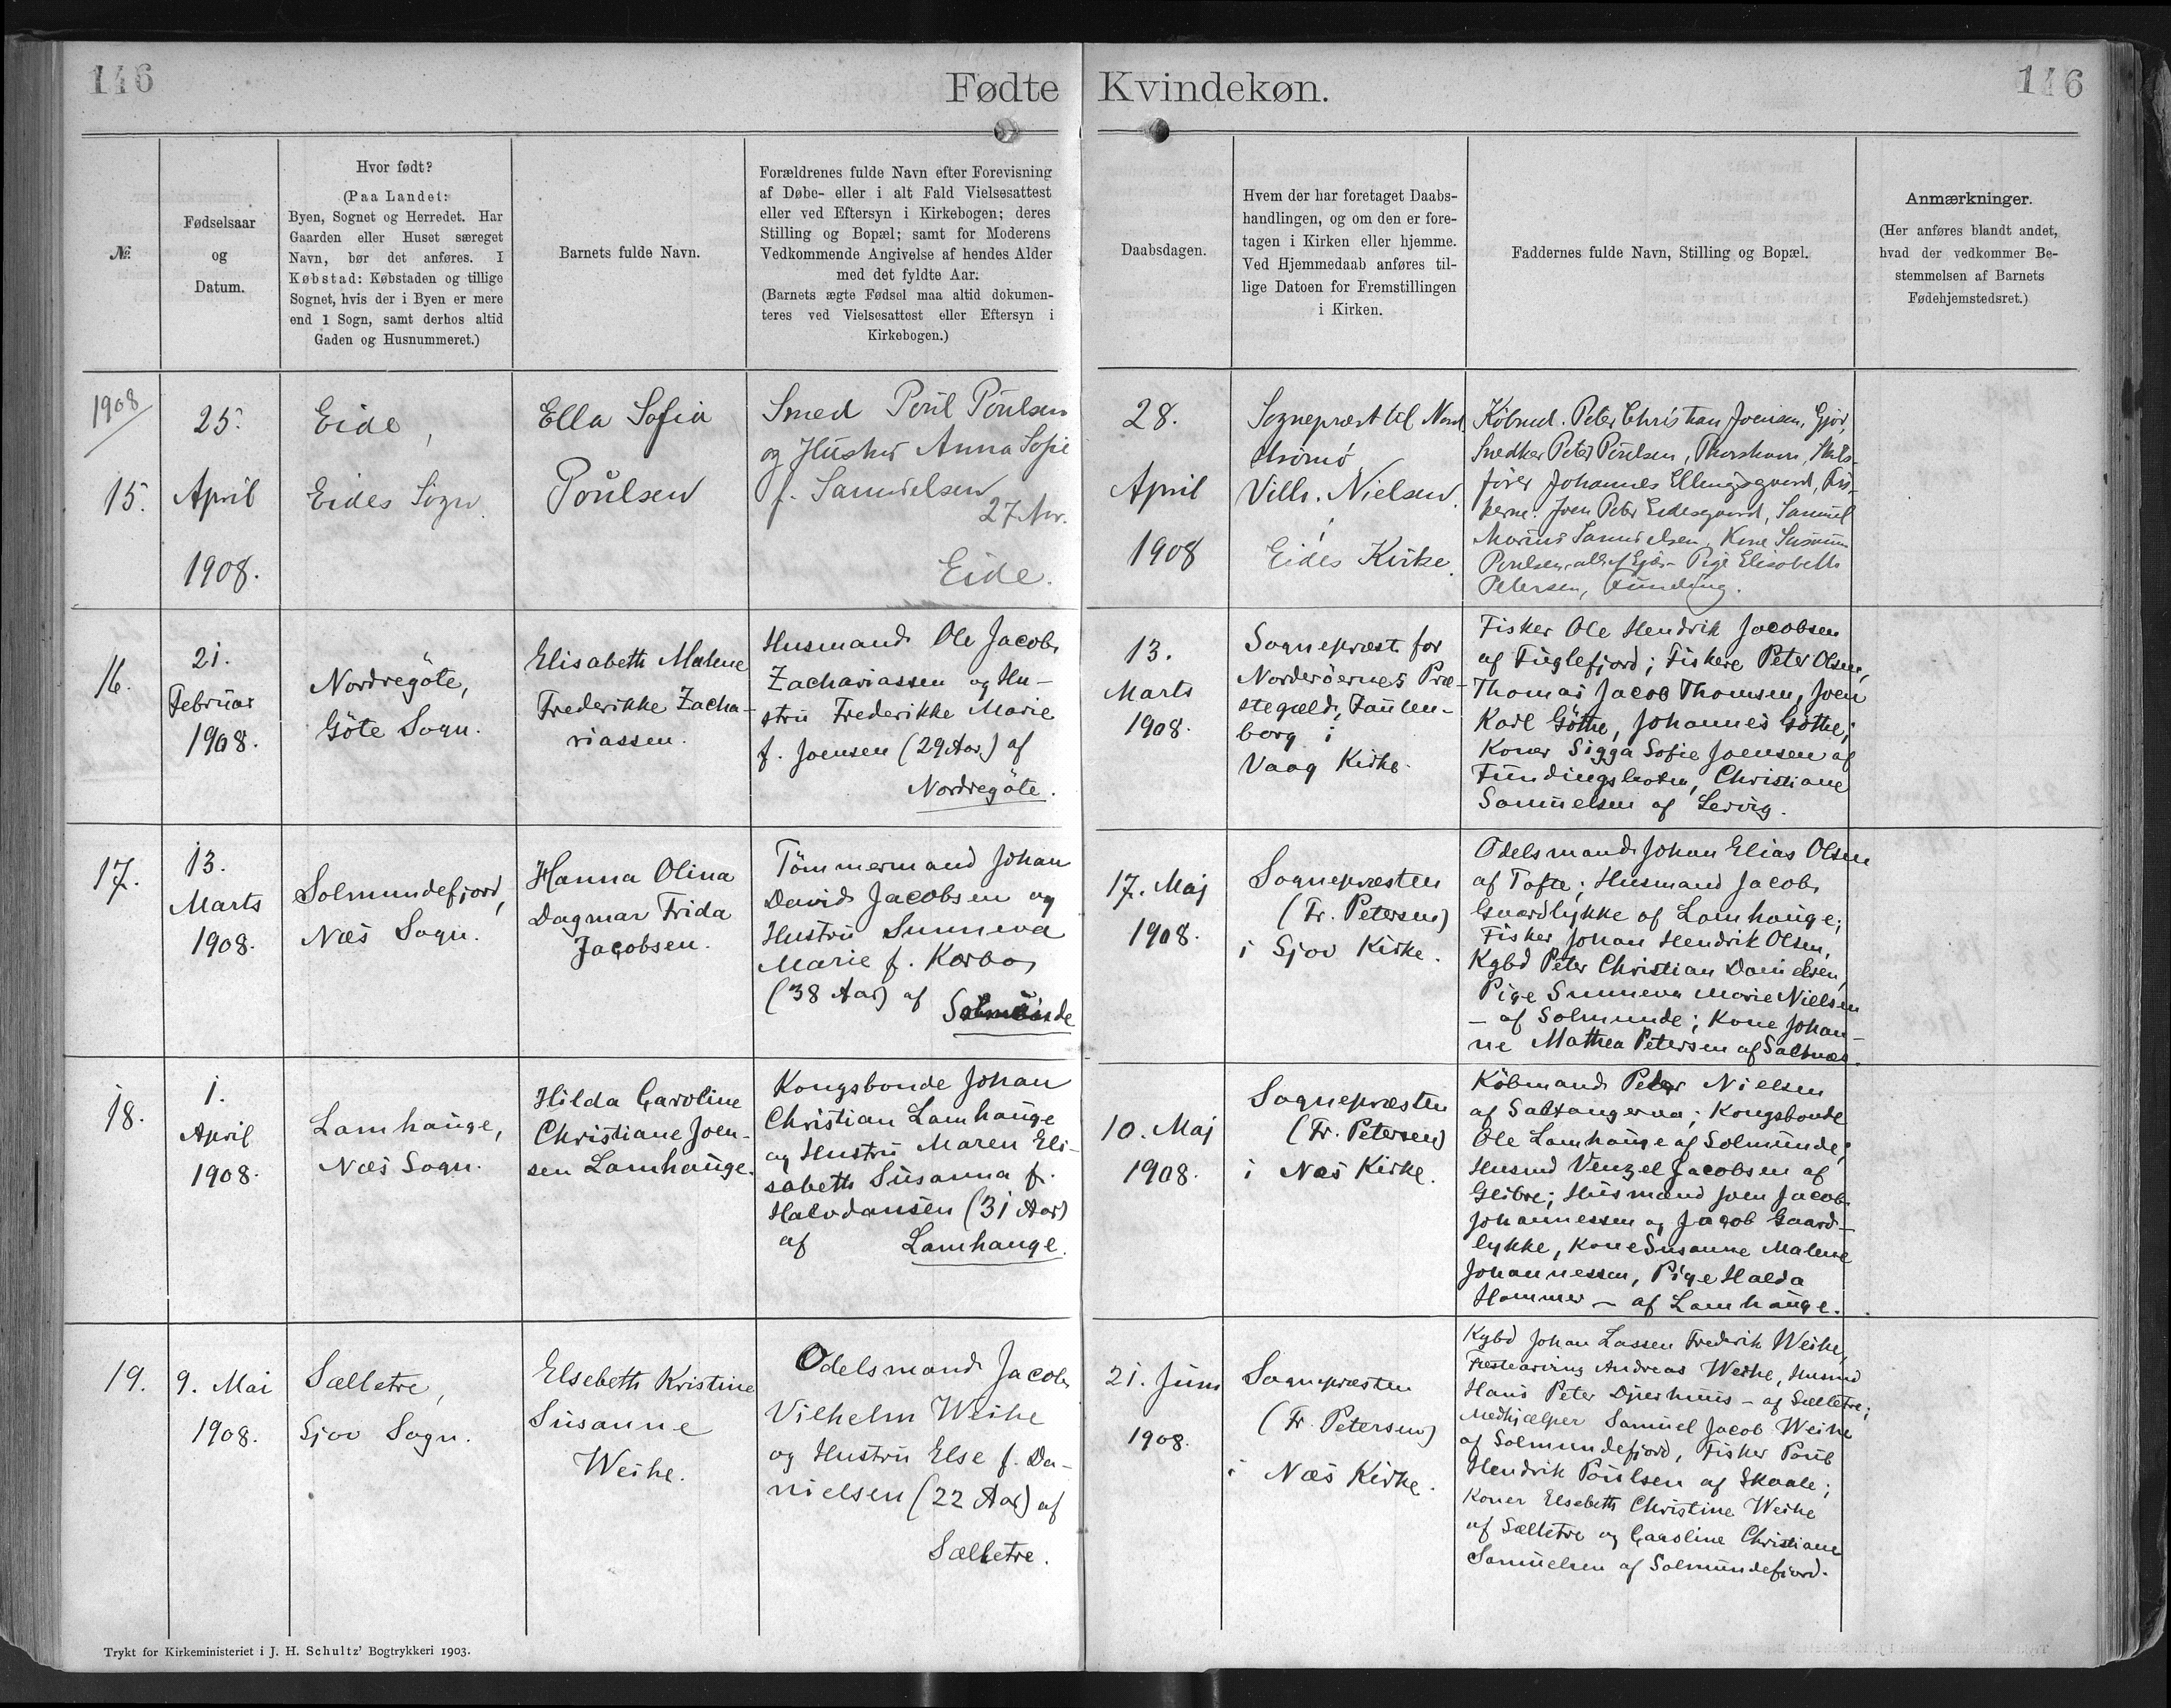 146
Fødte
Kvindekøn.
146
№
Fødselsaar
og
Datum.
Hvor født?
(Paa Landet:
Byen, Sognet og Herredet. Har
Gaarden eller Huset særeget
Navn, bør det anføres. I
Købstad: Købstaden og tillige
Sognet, hvis der i Byen er mere
end 1 Sogn, samt derhos altid
Gaden og Husnummeret.)
Barnets fulde Navn.
Forældrenes fulde Navn efter Forevisning
af Døbe- eller i alt Fald Vielsesattest
eller ved Eftersyn i Kirkebogen; deres
Stilling og Bopæl; samt for Moderens
Vedkommende Angivelse af hendes Alder
med det fyldte Aar.
(Barnets ægte Fødsel maa altid dokumen-
teres ved Vielsesattest eller Eftersyn i
Kirkebogen.)
Daabsdagen.
Hvem der har foretaget Daabs-
handlingen, og om den er fore-
tagen i Kirken eller hjemme.
Ved Hjemmedaab anføres til-
lige Datoen for Fremstillingen
i Kirken.
Faddernes fulde Navn, Stilling og Bopæl.
Anmærkninger.
(Her anføres blandt andet,
hvad der vedkommer Be-
stemmelsen af Barnets
Fødehjemstedsret.)
1908
15.
25.
April
1908.
Eide,
Eides Sogn
Ella Sofia
Poulsen
Smed Poul Poulsen
og Hustru Anna Sofie
f. Samuelsen
27 Aar.
Eide.
28.
April
1908
Sognepræst til Nord
strömö
Vilh. Nielsen
Eides Kirke
Købmd. Peter Christian Joensen, Gjov,
Snedker Peter Poulsen, Thorshavn, Skibs-
fører Johannes Ellingsgaard, Fis-
kerne: Joen Peter Eidesgaard, Samuel
Marius Samuelsen, Kone
Poulsen, alle af Pige Elisabeth
Petersen, Funding.
16.
21.
Februar
1908.
Nordregöte,
Göte Sogn.
Elisabeth Malene
Frederikke Zacha-
riassen.
Husmand Ole Jacob
Zachariassen og Hu-
stru Frederikke Marie
f. Joensen (29 Aar) af
Nordregöte.
13.
Marts
1908.
Sognepræst for
Norderöernes Præ-
stegæld, Faulen-
borg i
Vaag Kirke.
Fisker Ole Hendrik Jacobsen
af Fuglefjord; Fiskere Peter Olsen,
Thomas Jacob Thomsen, Joen
Karl Göthe, Johannes Göthe;
Koner Sigga Sofie Joensen af
Fundingsbotn, Christiane
Samuelsen af Lervig.
17.
13.
Marts
1908.
Solmundefjord,
Næs Sogn.
Hanna Olina
Dagmar Frida
Jacobsen.
Tömmermand Johan
David Jacobsen og
Hustru Sunneva
Marie f. Korbo,
(38 Aar) af
Solmunde
17. Maj
1908.
Sognepræsten
(Fr. Petersen)
i Sjov Kirke.
Odelsmand Johan Elias Olsen
af Tofte; Husmand Jacob
Gaardlykke af Lamhauge;
Fisker Johan Hendrik Olsen,
Kgbd Peter Christian Danielsen,
Pige Sunneva Marie Nielsen
– af Solmunde; Kone Johan-
ne Mathea Petersen af Saltnæs.
18.
1.
April
1908.
Lamhauge,
Næs Sogn.
Hilda Caroline
Christiane Joen-
sen Lamhauge.
Kongsbonde Johan
Christian Lamhauge
og Hustru Maren Eli-
sabeth Susanna f.
Halvdansen (31 Aar)
af Lamhauge.
10. Maj
1908.
Sognepræsten
(Fr. Petersen)
i Næs Kirke.
Købmand Peter Nielsen
af Saltangeraa; Kongsbonde
Ole Lamhauge af Solmunde;
Husmd Venzel Jacobsen af
Glibre; Husmand Joen Jacob
Johannessen og Jacob Gaard-
lykke, Kone Susanne Malene
Johannessen, Pige Halda
Hammer – af Lamhauge.
19.
9. Mai
1908.
Sælletre,
Sjov Sogn.
Elsebeth Kristine
Susanne
Weihe.
Odelsmand Jacob
Vilhelm Weihe
og Hustru Else f. Da-
nielsen (22 Aar) af
Sælletre.
21. Juni
1908.
Sognepræsten
(Fr. Petersen)
i Næs Kirke.
Kgbd Johan Lassen Frederik Weihe,
Fæstearving Andreas Weihe, Husmd
Hans Peter Djurhuus – af Sælletre;
Medhjælper Samuel Jacob Weihe
af Solmundefjord, Fisker Poul
Hendrik Poulsen af Skaale;
Koner Elsebeth Christine Weihe
af Sælletre og Caroline Christiane
Samuelsen af Solmundefjord.
Trykt for Kirkeministeriet i J. H. Schultz' Bogtrykkeri 1903.